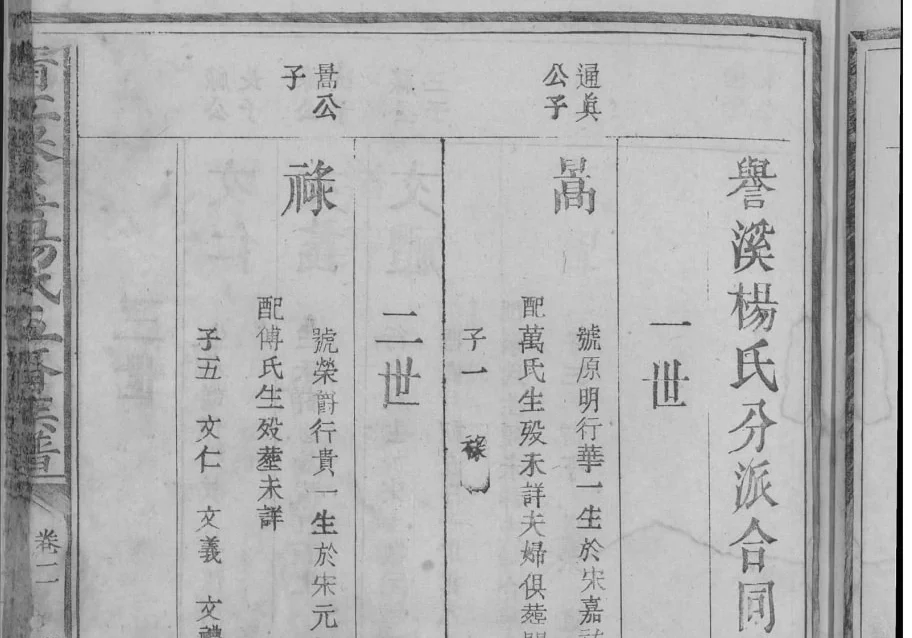 譽溪楊氏分派合同
一世
通眞
公子
暠
號原明行華一生於宋嘉
配萬氏生歿未詳夫婦俱塟
子一 祿
二世
暠公
子
祿
號榮爵行貴一生於宋元
配傅氏生歿塟未詳
子五 文仁 文義 文禮
楊氏
譜
卷二